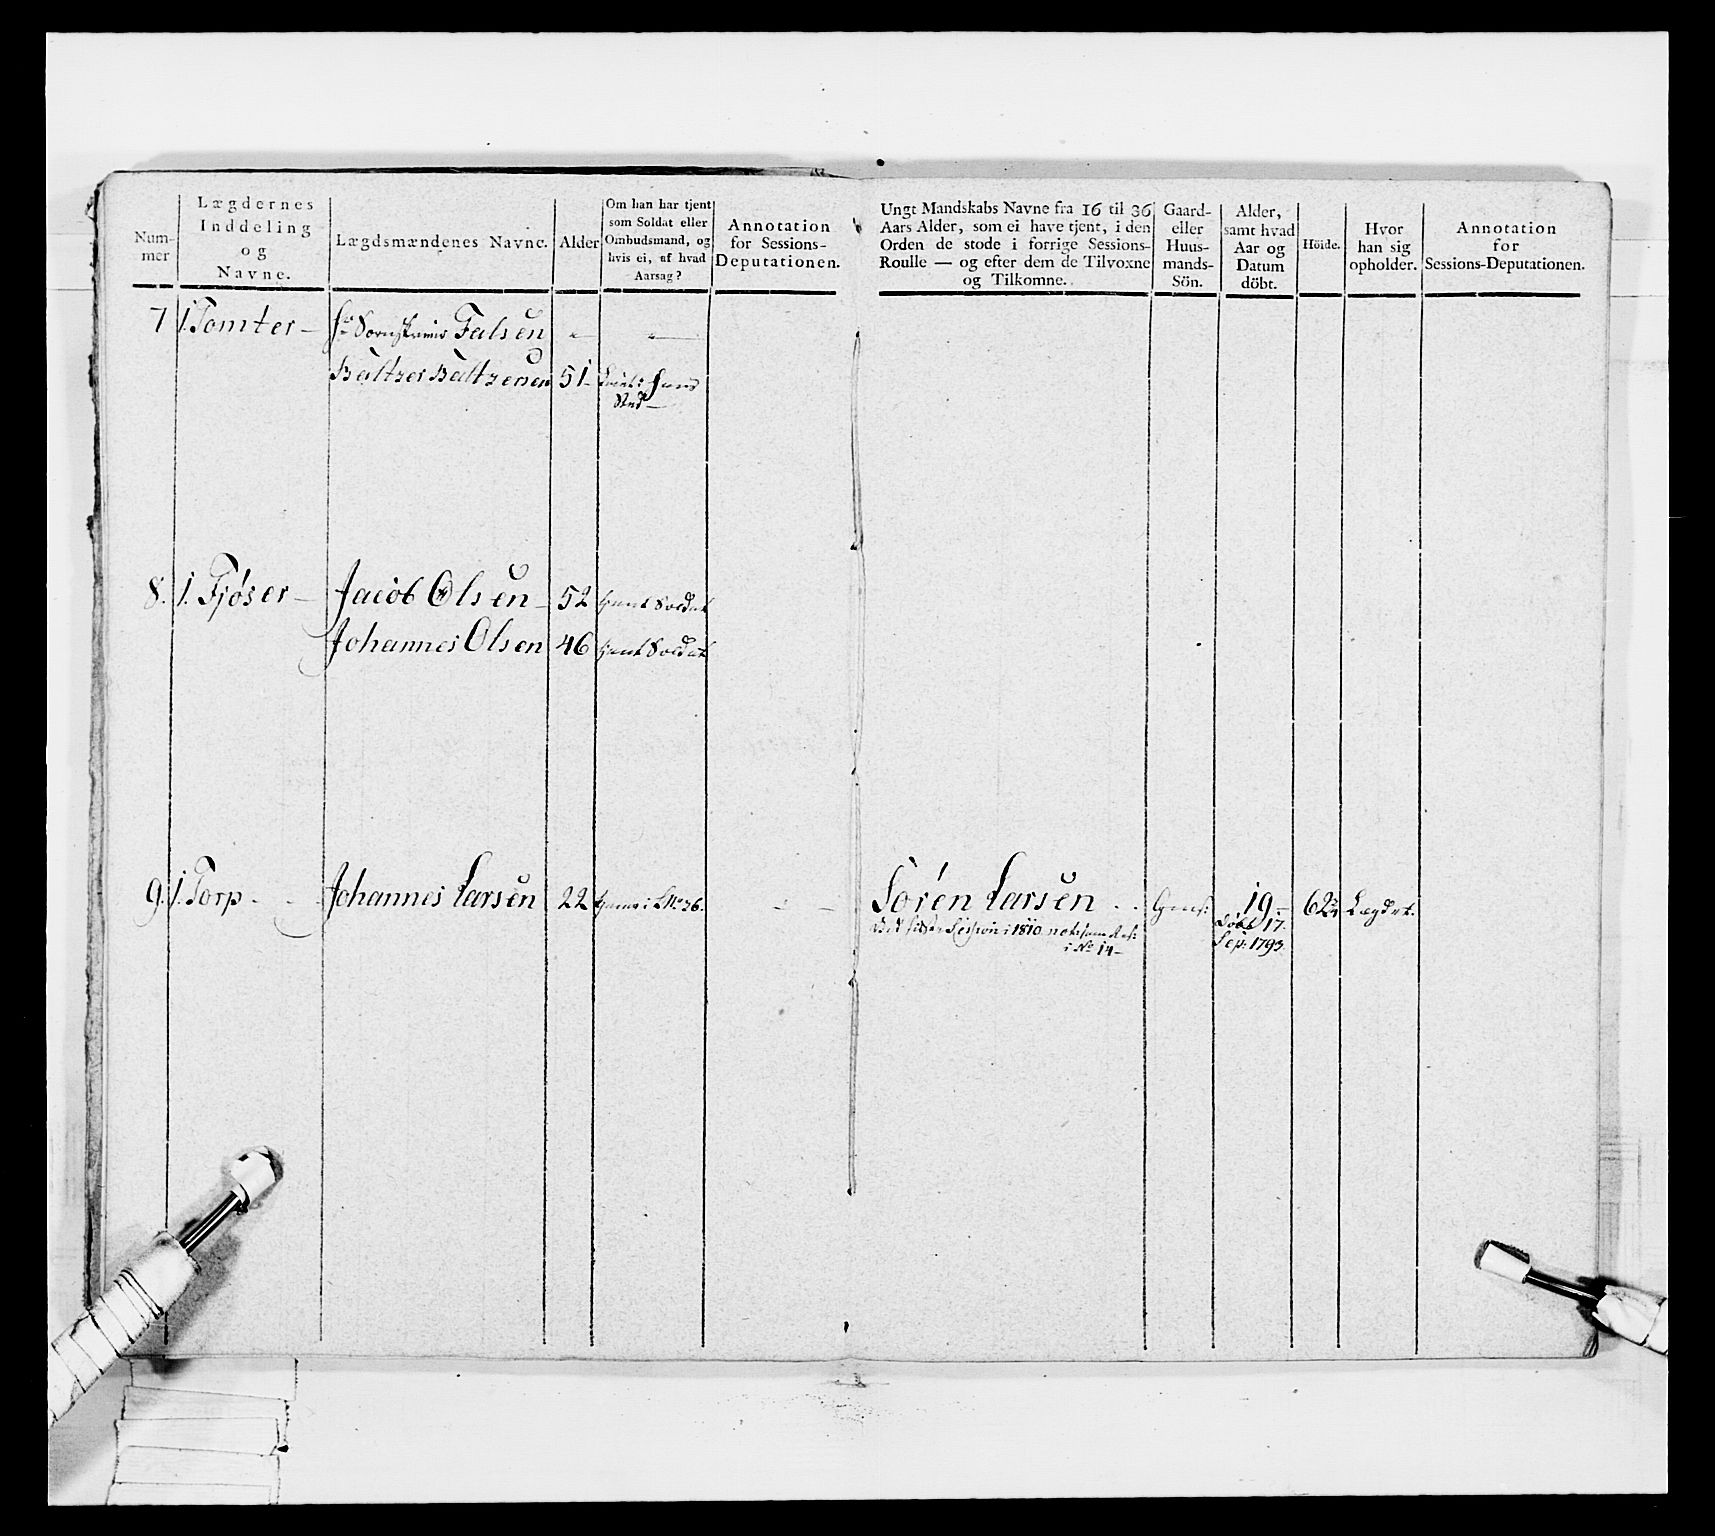 Num-
mer
Lægdernes
Inddeling
og
Navne.
Lægdsmændenes Navne.
Alder
Om han har tjent
som Soldat eller
Ombudsmand, og
hvis ei, af hvad
Aarsag?
Annotation
for Sessions-
Deputationen.
Ungt Mandskabs Navne fra 16 til 36
Aars Alder, som ei have tjent, i den
Orden de stode i forrige Sessions-
Roulle — og efter dem de Tilvoxne
og Tilkomne.
Gaard-
eller
Huus-
mands-
Sön.
Alder,
samt hvad
Aar og
Datum
döbt.
Höide.
Hvor
han sig
opholder.
Annotation
for
Sessions-Deputationen.
7 1. Tomter — Falsen
Baltzer Baltzersen 51-
8. 1. Fjøser — Jacob Olsen - 52 tjent Soldat
Johannes Olsen 46 tjent Soldat
9. 1. Torp - Johannes Larsen 22 No 36. Søren Larsen 19- 62 Lægdet.
Session i 1810 Døbt 17.
i No 14 - Sep: 1793.